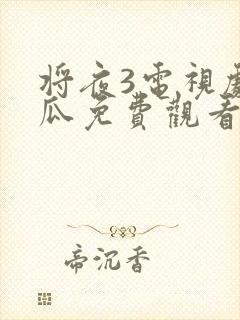 將夜3電視劇
瓜免費觀看
帝沉香